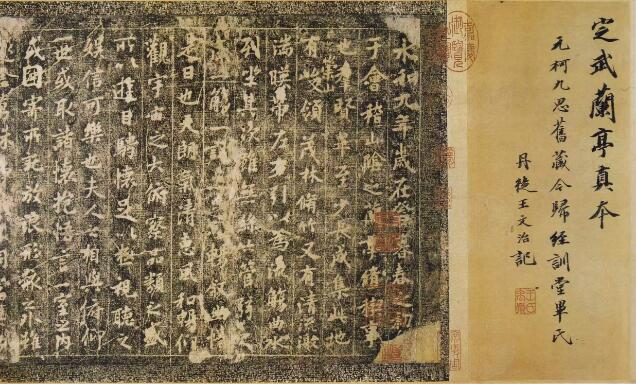 定武蘭亭真本
元柯九思舊藏今歸經訓堂畢氏
丹徒王文治記
永和九年歲在暮春之初
于會稽山陰之蘭亭脩稧事
也羣賢畢至少長咸集此地
有崇山峻領茂林脩竹又有清流激
湍暎帶左右引以為流觴曲水
列坐其次雖無絲竹管弦之
盛一觴一詠敘幽情
是日也天朗氣清惠風和暢仰
觀宇宙之大俯察品類之盛
所以遊目騁懷足以極視聽之
娛信可樂也夫人之相與俯仰
一世或取諸懷抱悟言一室之內
或因寄所託放浪形骸之外雖